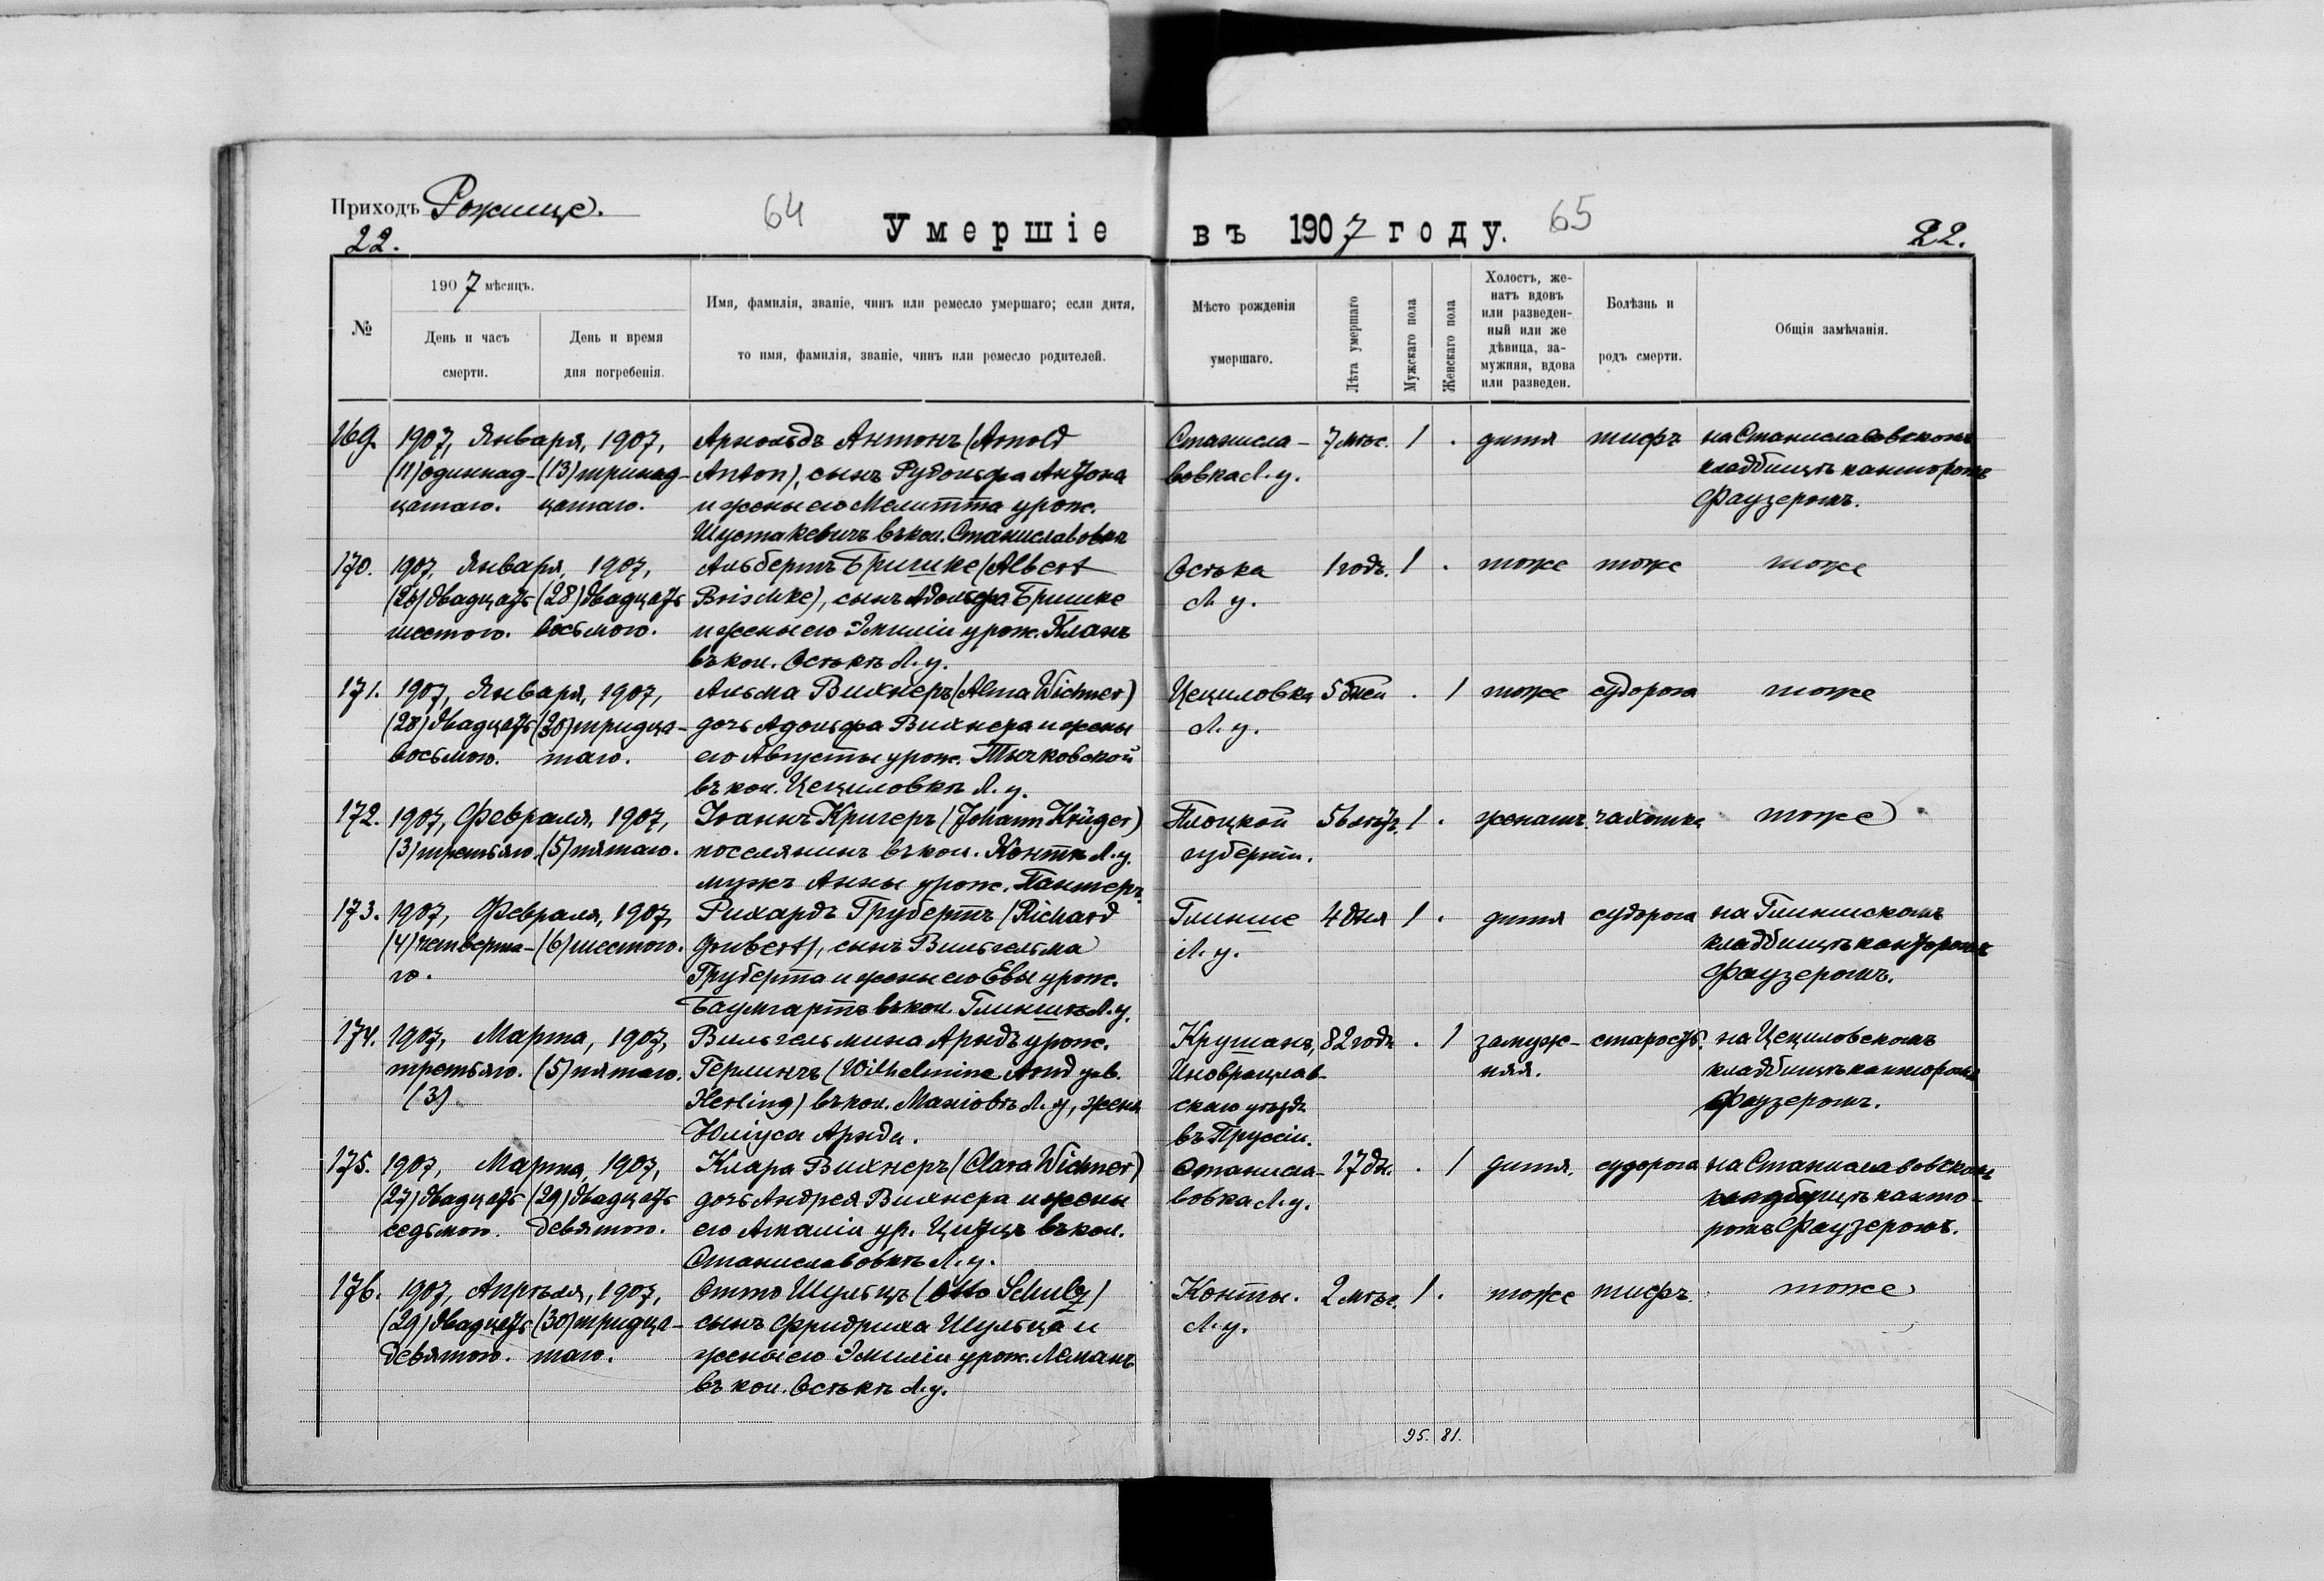 Приходъ Рожище.
64
65
Умершіе въ 1907 году.
22.
22.
№
1907 мѣсяцъ.
День и часъ смерти.
День и время дня погребенія.
Имя, фамилія, званіе, чинъ или ремесло умершаго; если дитя,
то имя, фамилія, званіе, чинъ или ремесло родителей.
Мѣсто рожденія
умершаго.
Лѣта умершаго
Мужскаго пола
Женскаго пола
Холостъ, же-
натъ вдовъ
или разведен-
ный или же
дѣвица, за-
мужняя, вдова
или разведен.
Болѣзнь и
родъ смерти.
Общія замѣчанія.
169. 1907, Января, 1907, Арнольдъ Антонъ (Arnold Станисла- 7 мѣс. 1 . дитя тифъ на Станиславовскомъ
(11) одиннад- (13) тринад- Anton), сынъ Рудольфа Антона вовка Л. у. кладбищѣ канторомъ
цатаго. цатаго. и жены его Мелитта урож. Фаузеромъ.
Шустакевичъ въ кол. Станиславовкѣ
170. 1907, Января, 1907, Альбертъ Бришке (Albert Осѣка 1 годъ. 1 . тоже тоже тоже
(26) двадцать (28) двадцать Brischke), сынъ Адольфа Бришке Л. у.
шестого. восьмого. и жены его Эмиліи урож. Кланъ
въ кол. Осѣкѣ Л. у.
171. 1907, Января, 1907, Альма Вихнеръ (Alma Wichner) Цециловка 5 дней . 1 тоже судорога тоже
(28) двадцать (30) тридца- дочь Адольфа Вихнера и жены Л. у.
восьмого. таго. его Августы урож. Тычковской
въ кол. Цециловкѣ Л. у.
172. 1907, Февраля, 1907, Іоаннъ Кригеръ (Johann Krüger) Плоцкой 56 лѣтъ. 1 . женатъ. чахотка тоже
(3) третьяго. (5) пятаго. поселянинъ въ кол. Контѣ Л. у. губерніи.
мужъ Анны урож. Пантеръ.
173. 1907, Февраля, 1907, Рихардъ Грубертъ (Richard Глинише 4 дня 1 . дитя судорога на Глинишскомъ
(4) четверта- (6) шестого. Grubert), сынъ Вильгельма Л. у. кладбищѣ канторомъ
го. Груберта и жены его Евы урож. Фаузеромъ.
Баумгартъ въ кол. Глинишѣ Л. у.
174. 1907, Марта, 1907, Вильгельмина Арндъ урож. Крушанъ, 82 года . 1 замуж- старость. на Цециловскомъ
третьяго. (5) пятаго. Герлингъ (Wilhelmine Arnd geb. Иноврацлав- няя. кладбищѣ канторомъ
(3) Herling) въ кол. Маховѣ Л. у, жена скаго уѣзда Фаузеромъ.
Юліуса Арнда. въ Пруссіи.
175. 1907, Марта, 1907, Клара Вихнеръ (Clara Wichner) Станисла- 17 дн. . 1 дитя. судорога на Станиславовскомъ
(27) двадцать (29) двадцать дочь Андрея Вихнера и жены вовка Л. у. кладбищѣ канто-
седьмого. девятого. его Амаліи ур. Цитцъ въ кол. ромъ Фаузеромъ.
Станиславовкѣ Л. у.
176. 1907, Апрѣля, 1907, Отто Шульцъ (Otto Schulz) Конты. 2 мѣс. 1 . тоже тифъ. тоже
(29) двадцать (30) тридца- сынъ Фридриха Шульца и Л. у.
девятого. таго. жены его Эмиліи урож. Леманъ
въ кол. Осѣкѣ Л. у.
95. 81.